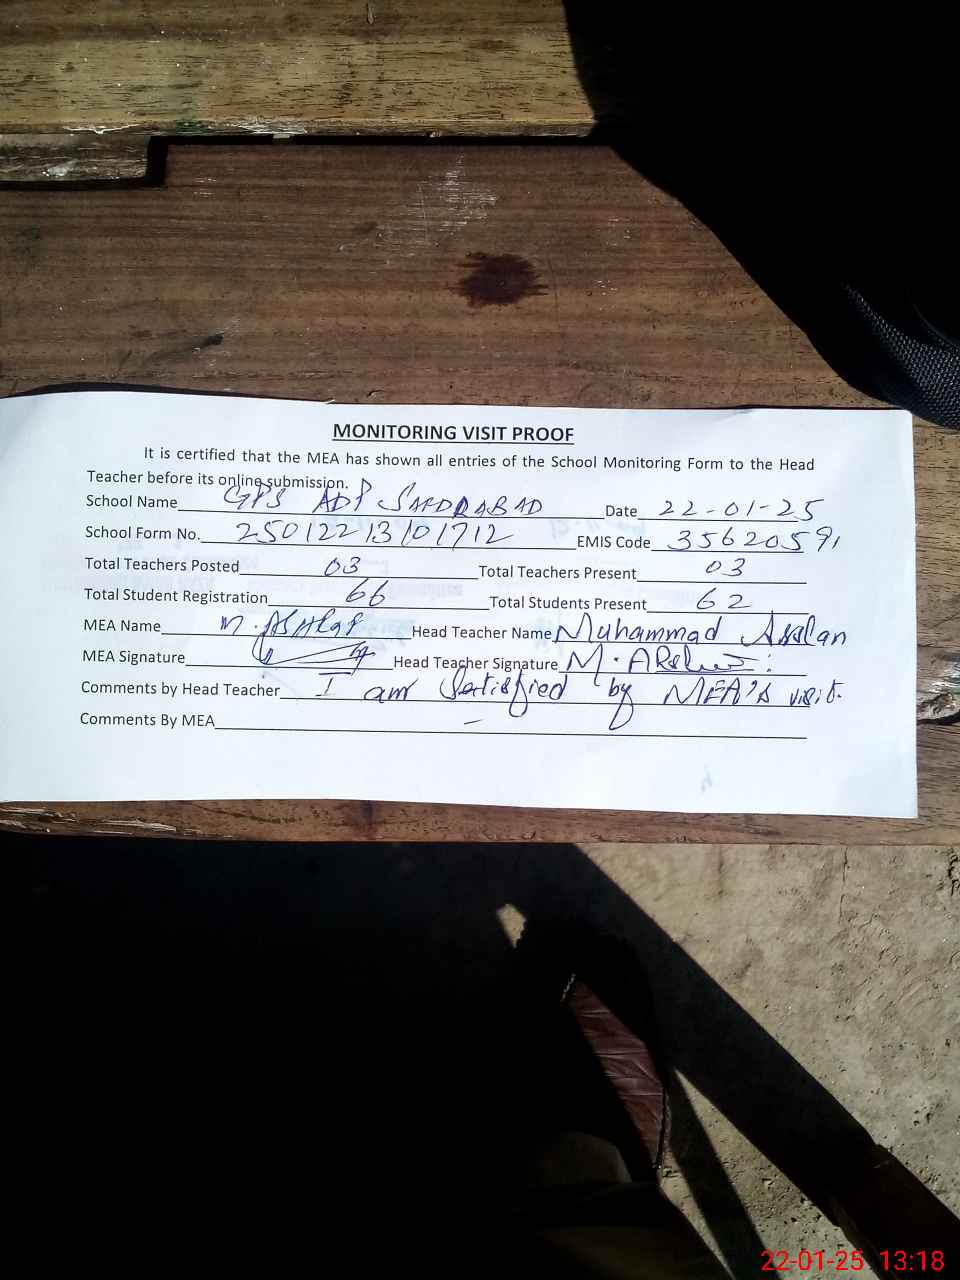 MONITORING VISIT PROOF
It is certified that the MEA has shown all entries of the School Monitoring Form to the Head
Teacher before its online submission.
School Name GPS ADP SAFDRABAD Date 22-01-25
School Form No. 2501221310 1712 EMIS Code 35620591
Total Teachers Posted 03 Total Teachers Present 03
Total Student Registration 66 Total Students Present 62
MEA Name M. Head Teacher Name Muhammad Arslan
MEA Signature Head Teacher Signature M. 
Comments by Head Teacher I am Satisfied by MEA's visit.
Comments By MEA –
22-01-25 13:18